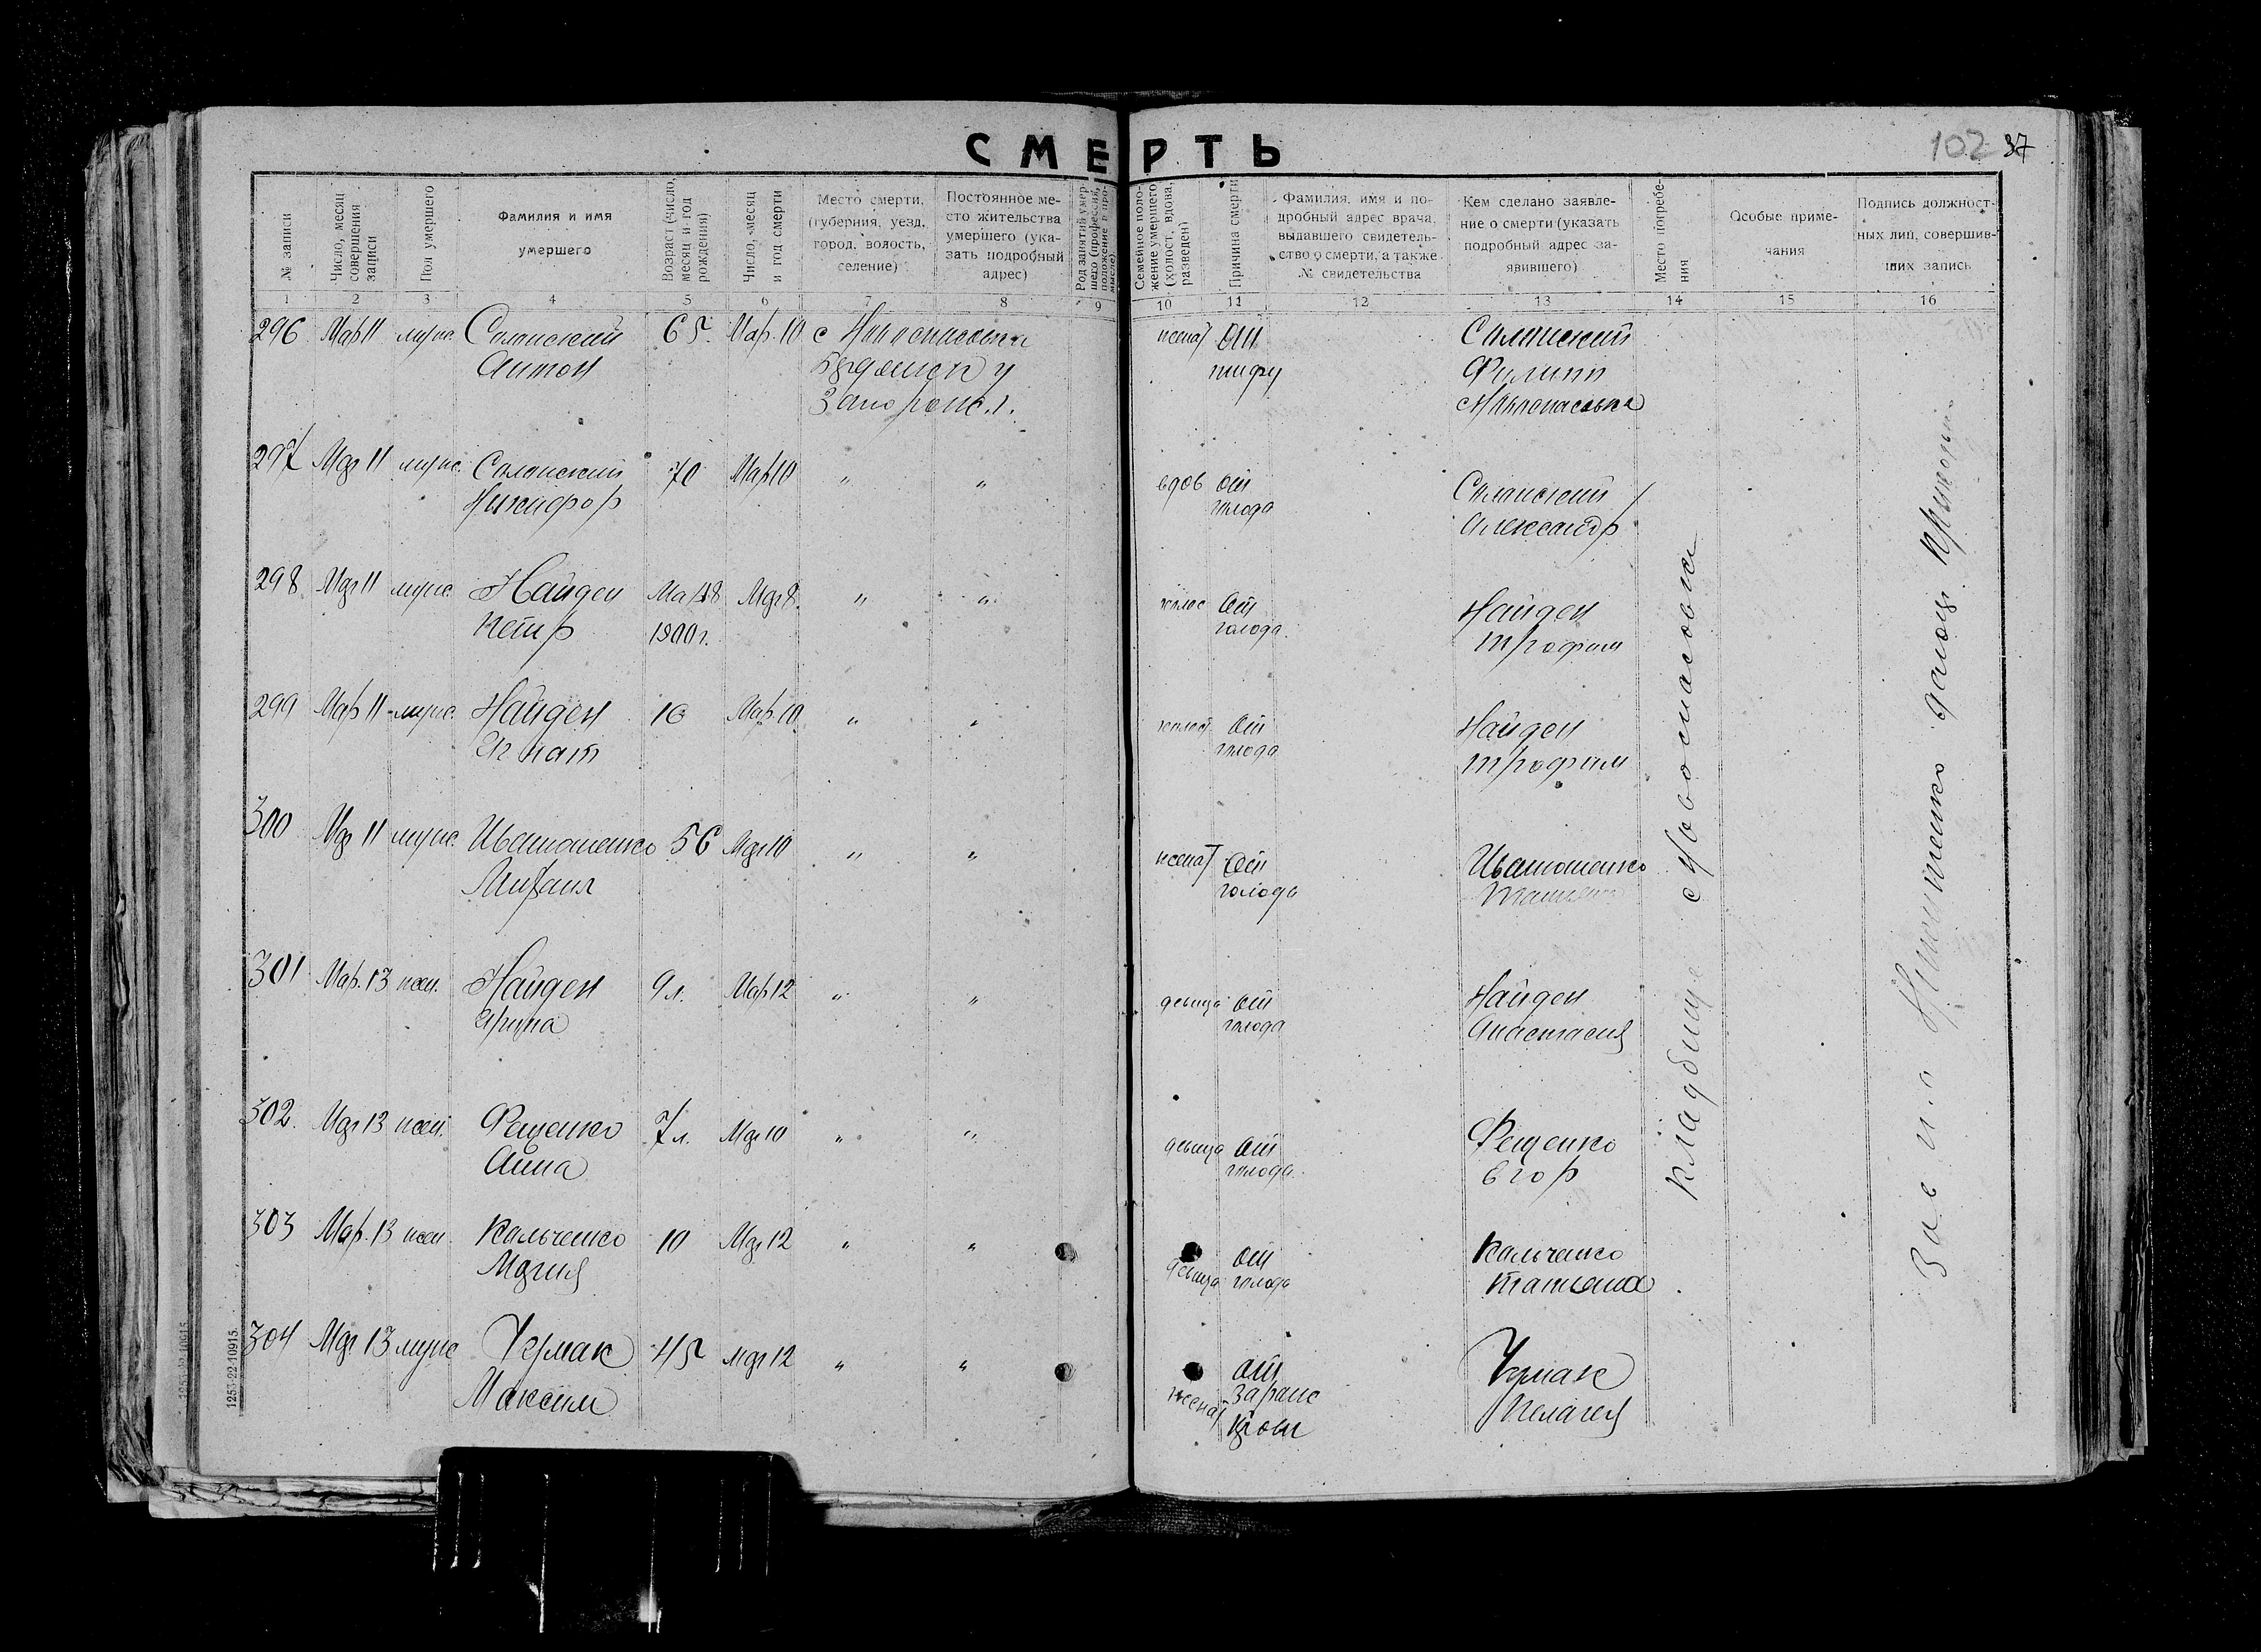 СМЕРТЬ
102 37
№ записи
Число, месяц совершения записи
Пол умершего
Фамилия и имя
умершего
Возраст (число, месяц и год рождения)
Число, месяц и год смерти
Место смерти,
(губерния, уезд,
город, волость,
селение)
Постоянное ме-
сто жительства
умершего (ука-
зать подробный
адрес)
Род занятий умер-
шего (профессия,
положение в про-
мысле)
Семейное поло-
жение умершего
(холост, вдова,
разведен)
Причина смерти
Фамилия, имя и по-
дробный адрес врача,
выдавшего свидетель-
ство о смерти, а также
№ свидетельства
Кем сделано заявле-
ние о смерти (указать
подробный адрес за-
явившего)
Место погребе-
ния
Особые приме-
чания
Подпись должност-
ных лиц, совершив-
ших запись
1 2 3 4 5 6 7 8 9 10 11 12 13 14 15 16
296 Мар 11 муж. Солонский 65 Мар. 10 с Новоспасовка женат от Солонский
Антон Бердянск у тифу Филипп
Запорож. г. с Новоспасовка
297 Мар 11 муж. Солонский 70 Мар 10 " " вдов от Солонский
Никифор голода Александр
298 Мар 11 муж. Найден Мар 8 " " холос от Найден
Петр 1900 г. голода Трофим
299 Мар 11 муж. Найден 16 Мар. 10 " " холост от Найден
Игнат голода Трофим
300 Мар 11 муж. Иванющенко 56 Мар 10 " " женат от Иванющенко
Михаил голода
301 Мар. 13 жен. Найден 9 л. Мар 12 " " девица от Найден
Ирина голода Анастасия
302. Мар 13 жен. Фещенко 7 л. Мар 10 " " девица от Фещенко
Анна голода. Егор
303 Мар. 13 жен. Кальченко 10 Мар 12 " " девица от Кальченко
Мария голода Татьяна
304 Мар. 13 муж Чермак 45 Мар 12 " " женат от Чермак
Максим зараж Пелагея
крови
кладбище с Новоспасовки
1253-22-10915.